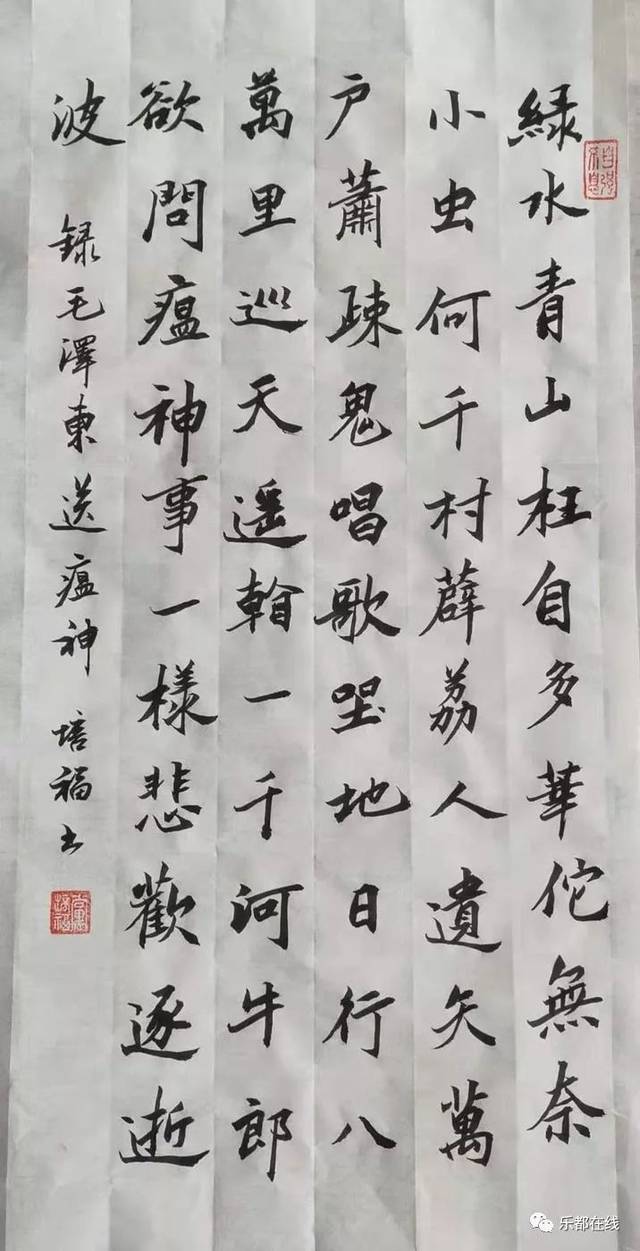 緑水青山枉自多華佗無奈
小虫何千村薜荔人遺矢萬
户蕭疎鬼唱歌㘴地日行八
萬里巡天遥翰一千河牛郎
欲問瘟神事一樣悲歡逐逝
波
録毛澤東送瘟神 培福书
自强不息
乐都在线